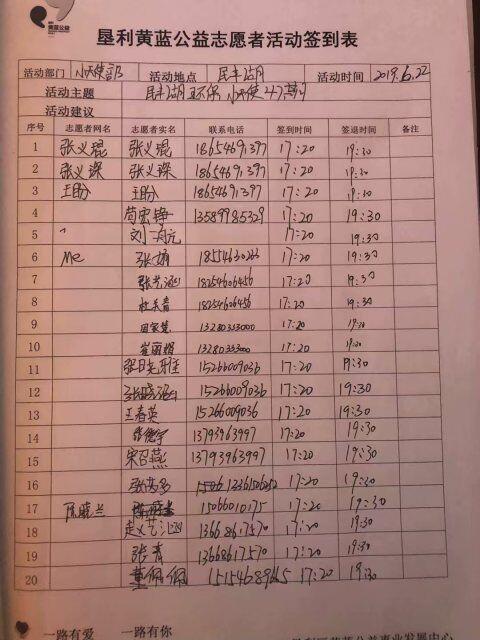 黄蓝公益
垦利黄蓝公益志愿者活动签到表
活动部门 小天使部 活动地点 民丰湖 活动时间 2019.6.22
活动主题 民丰湖环保小天使47期
活动建议
序号 志愿者网名 志愿者实名 联系电话 签到时间 签退时间 备注
1 张义琨 张义琨 18654691397 17:20 19:30
2 张义琛 张义琛 18654691397 17:20 19:30
3 王盼 王盼 18654691397 17:20 19:30
4 苟宏铮 13589985329 17:20 19:30
5 刘 17:20 19:30
6 Me 张娟 17:20 19:30
7 18254606456 17:20 19:30
8 杜长青 18254606456 17:20 19:30
9 田家慧 13280353000 17:20 19:30
10 崔丽娟 13280353000 17:20 19:30
11 15266009036 17:20 19:30
12 张晓涵 15266009036 17:20 19:30
13 王春英 15266009036 17:20 19:30
14 张德宇 13793963997 17:20 19:30
15 宋召燕 13793963997 17:20 19:30
16 17:20 19:30
17 陈晓兰 15066010175 17:20 19:30
18 赵艺涵 13668617570 17:20 19:30
19 张青 13668617570 17:20 19:30
20 董佩佩 17:20 19:30
一路有爱 一路有你